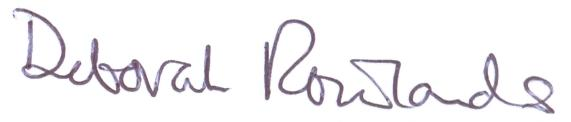 Deborah Rowlands